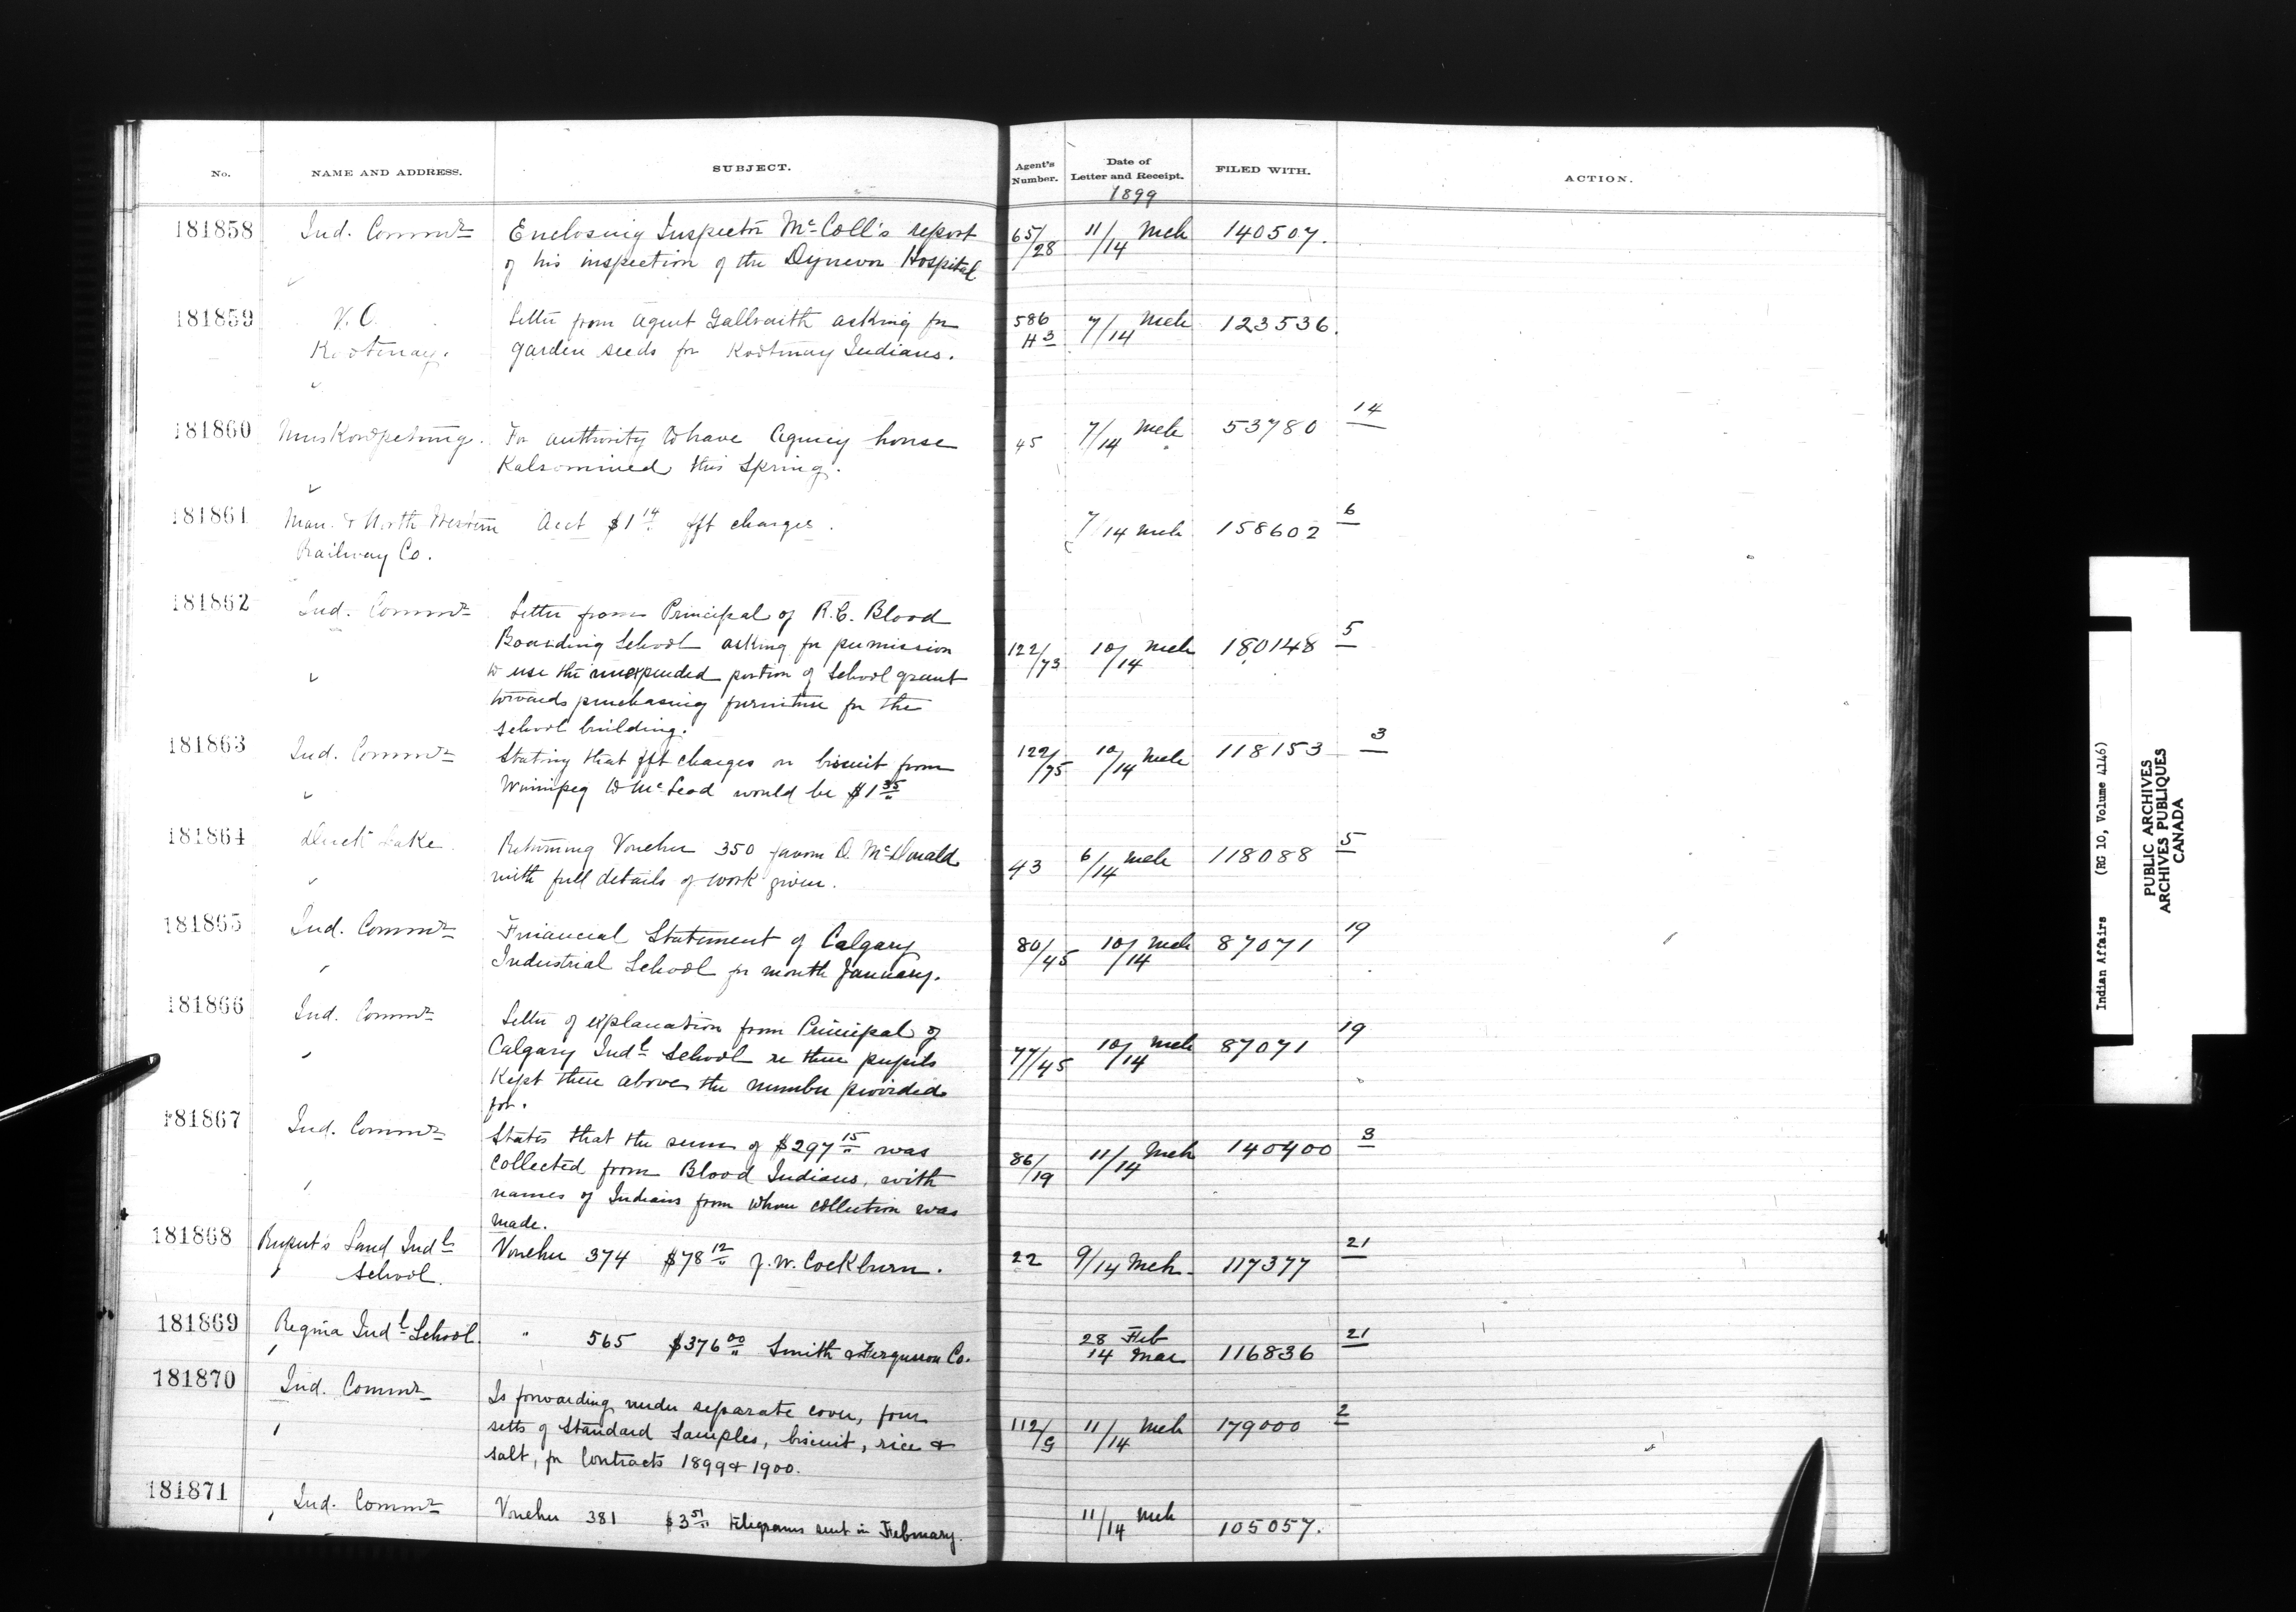 No. NAME AND ADDRESS. SUBJECT. Agent's Number. Date of Letter and Receipt. FILED WITH. ACTION.
1899
181858 Ind. Commr Enclosing Inspector McColl's report 65/28 11/14 Mch 140507.
of his inspection of the Dynevor Hospital
181859 V.C. Letter from Agent Galbraith asking for 586 H3 7/14 Mch 123536.
Kootenay. garden seeds for Kootenay Indians.
181860 Muskowpetung. For authority to have Agency house 45 7/14 Mch 53780 14
Kalsomined this Spring.
181861 Man. & North Western Acct $1 14 fft charges. 7/14 Mch 158602 6
Railway Co.
181862 Ind. Commr Letter from Principal of R.C. Blood
Boarding School asking for permission 122/73 10/14 Mch 180148 5
to use the unexpended portion of School grant
towards purchasing furniture for the
school building.
181863 Ind. Commr Stating that fft charges on biscuit from 122/75 10/14 Mch 118153 3
Winnipeg to McLeod would be $1 35
181864 Duck Lake Returning Voucher 350 favor D. McDonald 43 6/14 Mch 118088 5
with full details of work given.
181865 Ind. Commr Financial Statement of Calgary 80/45 10/14 Mch 87071 19
Industrial School for month January.
181866 Ind. Commr Letter of explanation from Principal of
Calgary Indl School re three pupils 77/45 10/14 Mch 87071 19
Kept there above the number provided
for.
181867 Ind. Commr States that the sum of $297 15 was
collected from Blood Indians, with 86/19 11/14 Mch 140400 3
names of Indians from whom collection was
made.
181868 Rupert's Land Indl Voucher 374 $78 12 J. W. Cockburn. 22 9/14 Mch 117377 21
School.
181869 Regina Indl School " 565 $376 00 Smith & Fergusson Co. 28 Feb
14 Mar 116836 21
181870 Ind. Commr Is forwarding under separate cover, four
setts of Standard Samples, biscuit, rice & 112/9 11/14 Mch 179000 2
salt, for Contracts 1899 & 1900.
181871 Ind. Commr Voucher 381 $3 51 telegrams sent in February. 11/14 Mch 105057.
Indian Affairs (RG 10, Volume 4146)
PUBLIC ARCHIVES
ARCHIVES PUBLIQUES
CANADA